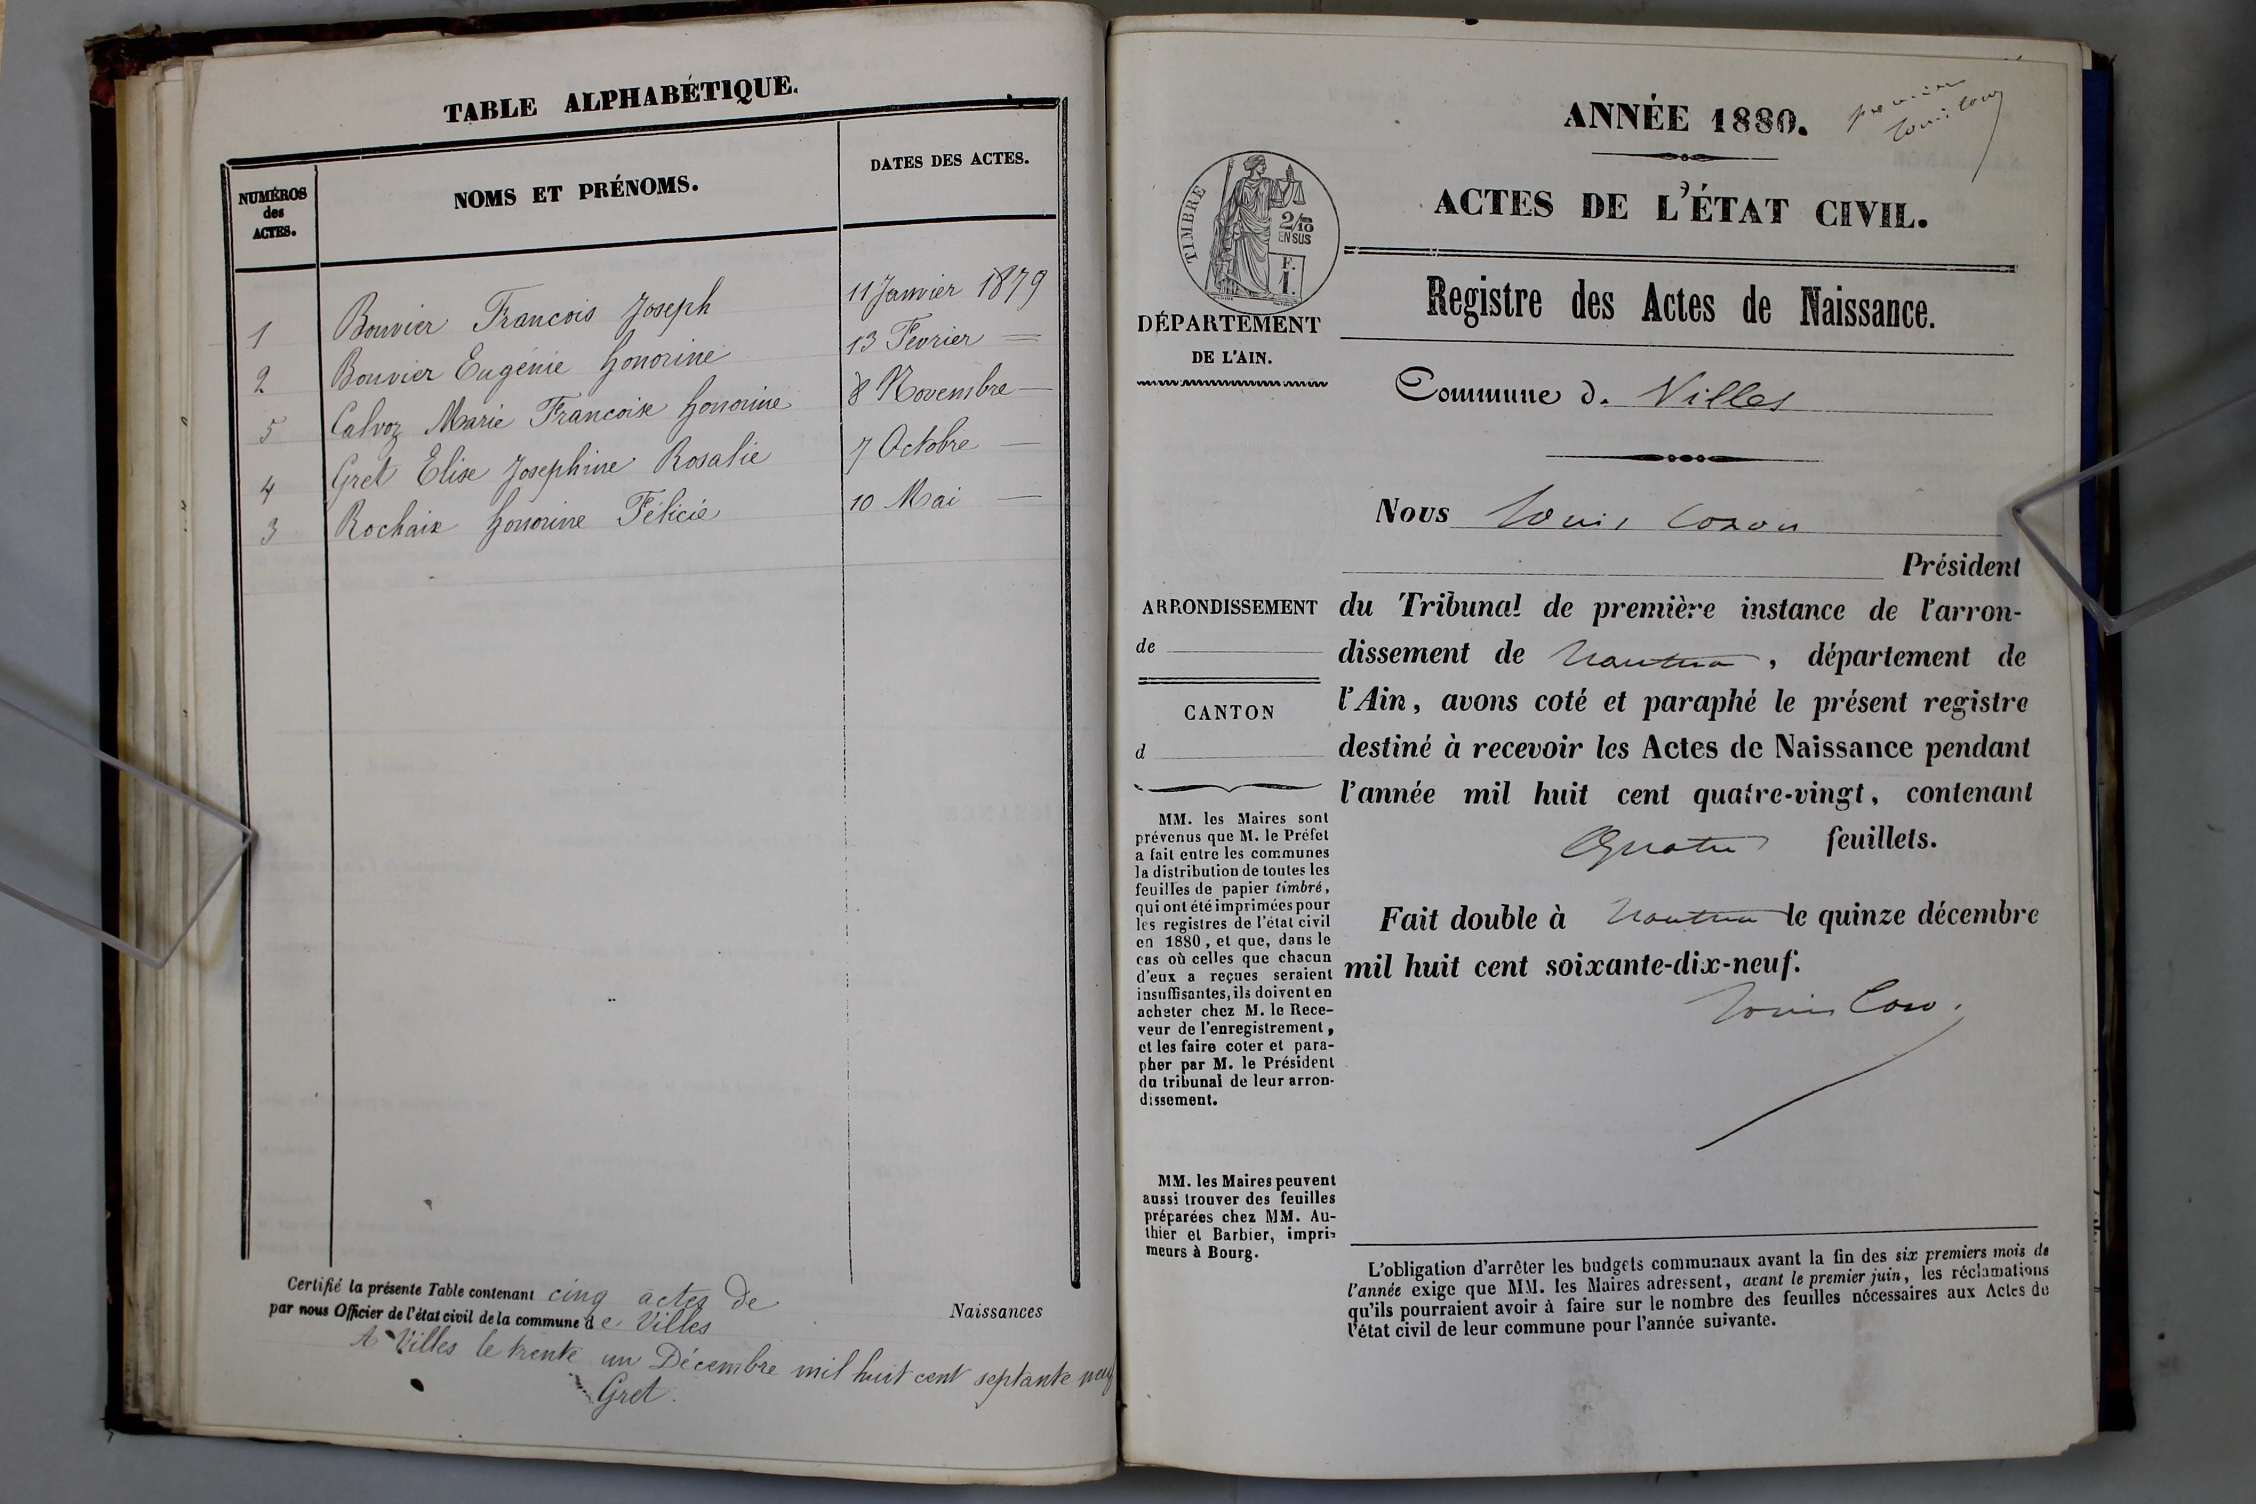 TABLE ALPHABÉTIQUE.
NUMÉROS
des
ACTES.
NOMS ET PRÉNOMS.
DATES DES ACTES.
1 Bouvier Francois Joseph 11 Janvier 1879
2 Bouvier Eugénie honorine 13 Fevrier =
5 Calvoz Marie Francoise honorine 8 Novembre —
4 Gret Elise Josephine Rosalie 7 Octobre —
3 Rochaix honorine Félicie 10 Mai —
Certifié la présente Table contenant cinq actes de Naissances
par nous Officier de l'état civil de la commune de Villes
A Villes le trente un Décembre mil huit cent septante neuf
Gret.
ANNÉE 1880.
premier
ACTES DE L'ÉTAT CIVIL.
TIMBRE
2/10
EN SUS
F.
1.
Registre des Actes de Naissance.
DÉPARTEMENT
DE L'AIN.
Commune d. Villes
Nous Louis
Président
ARRONDISSEMENT
de
CANTON
d
du Tribunal de première instance de l'arron-
dissement de Nantua, département de
l'Ain, avons coté et paraphé le présent registre
destiné à recevoir les Actes de Naissance pendant
l'année mil huit cent quatre-vingt, contenant
Quatre feuillets.
Fait double à Nantua le quinze décembre
mil huit cent soixante-dix-neuf.
Louis
MM. les Maires sont
prévenus que M. le Préfet
a fait entre les communes
la distribution de toutes les
feuilles de papier timbré,
qui ont été imprimées pour
les registres de l'état civil
en 1880, et que, dans le
cas où celles que chacun
d'eux a reçues seraient
insuffisantes, ils doivent en
acheter chez M. le Rece-
veur de l'enregistrement,
et les faire coter et para-
pher par M. le Président
du tribunal de leur arron-
dissement.
MM. les Maires peuvent
aussi trouver des feuilles
préparées chez MM. Au-
thier et Barbier, impri-
meurs à Bourg.
L'obligation d'arrêter les budgets communaux avant la fin des six premiers mois de
l'année exige que MM. les Maires adressent, avant le premier juin, les réclamations
qu'ils pourraient avoir à faire sur le nombre des feuilles nécessaires aux Actes de
l'état civil de leur commune pour l'année suivante.